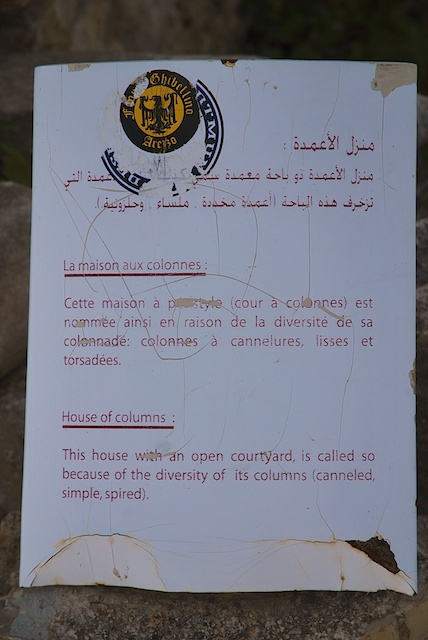 Ghibellina
Arezzo
منزل الأعمدة :
منزل الأعمدة ذو باحة معمدة سمي كذلك عمدة التي
تزخرف هذه الباحة (أعمدة مخددة . ملساء . وحلزونية).
La maison aux colonnes :
Cette maison à péristyle (cour à colonnes) est
nommée ainsi en raison de la diversité de sa
colonnade: colonnes à cannelures, lisses et
torsadées.
House of columns :
This house with an open courtyard, is called so
because of the diversity of its columns (canneled,
simple, spired).